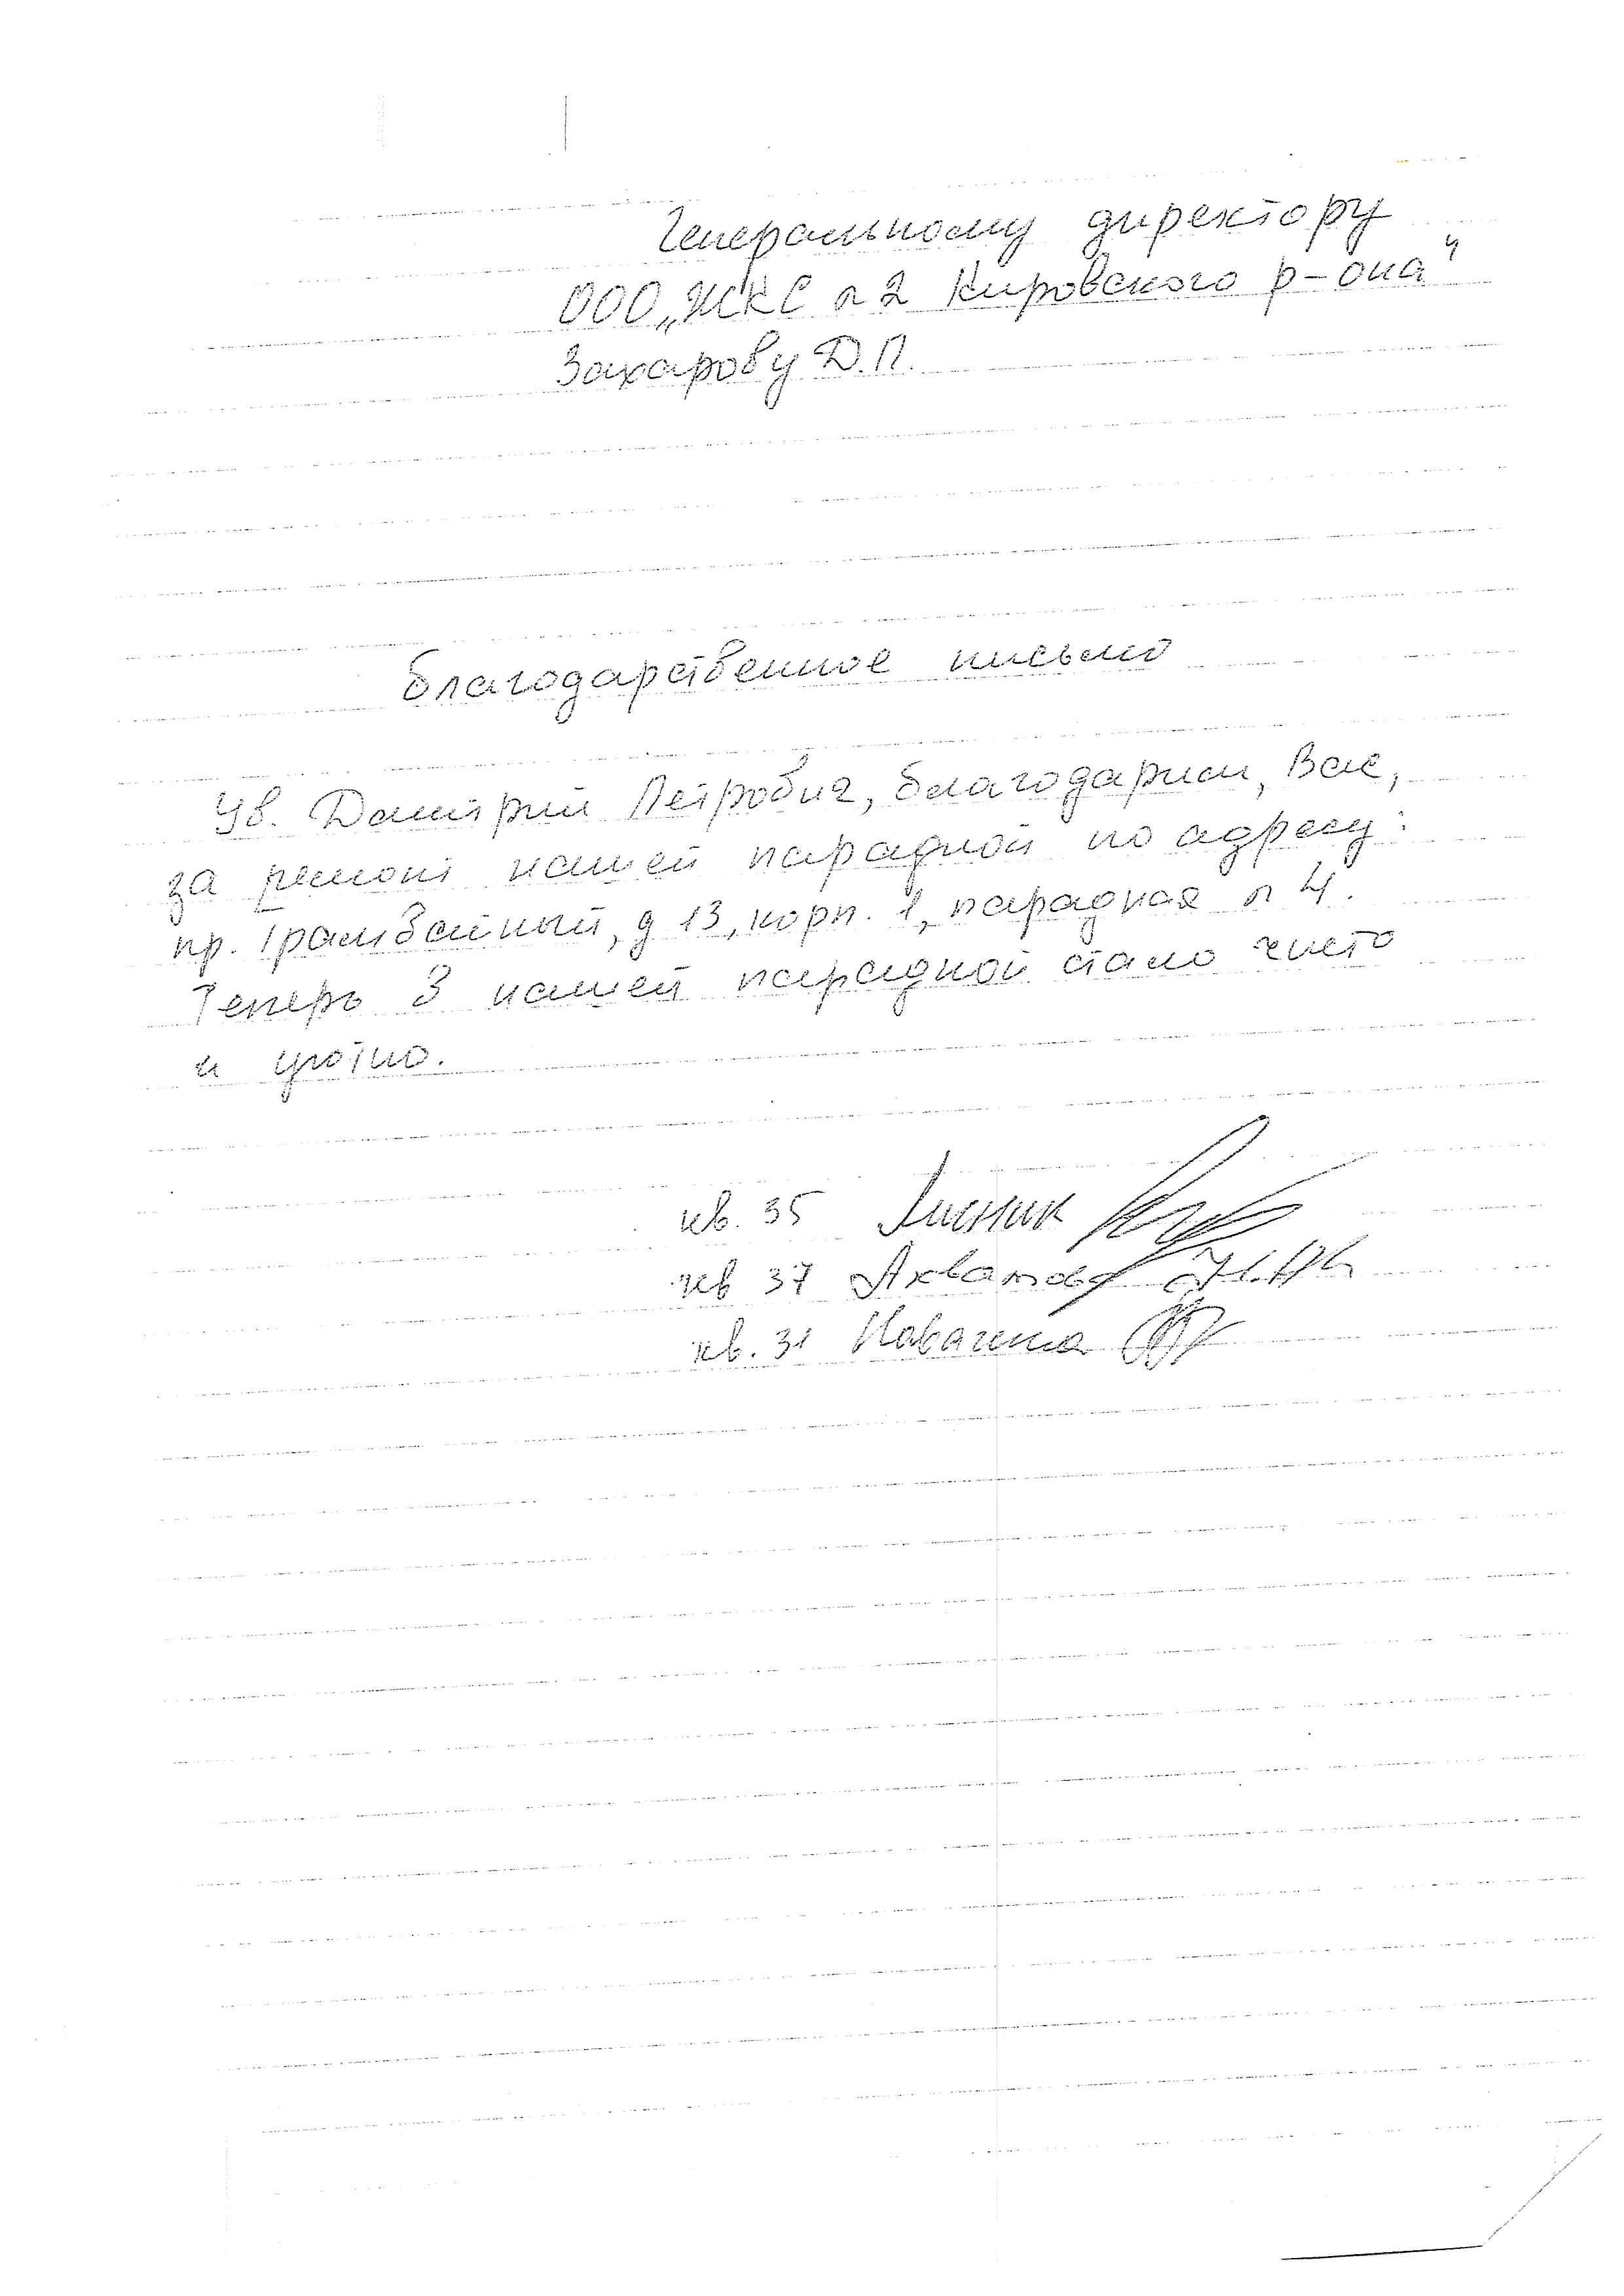 Генеральному директору
ООО „ЖКС n 2 Кировского р-она"
Захарову Д.П.
Благодарственное письмо
Ув. Дмитрий Петрович, благодарим, Вас,
за ремонт нашей парадной по адресу:
пр. Трамвайный, д 13, корп. 1, парадная n 4.
Теперь в нашей парадной стало чисто
и уютно.
кв. 35
кв 37
кв. 31